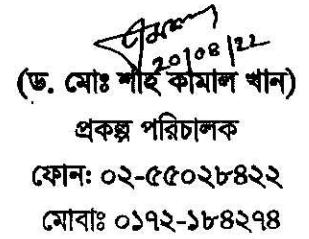 20/04/22
(ড. মোঃ শাহ কামাল খান)
প্রকল্প পরিচালক
ফোন: ০২-৫৫০২৮৪২২
মোবাঃ ০১৭২-১৮৪২৭৪